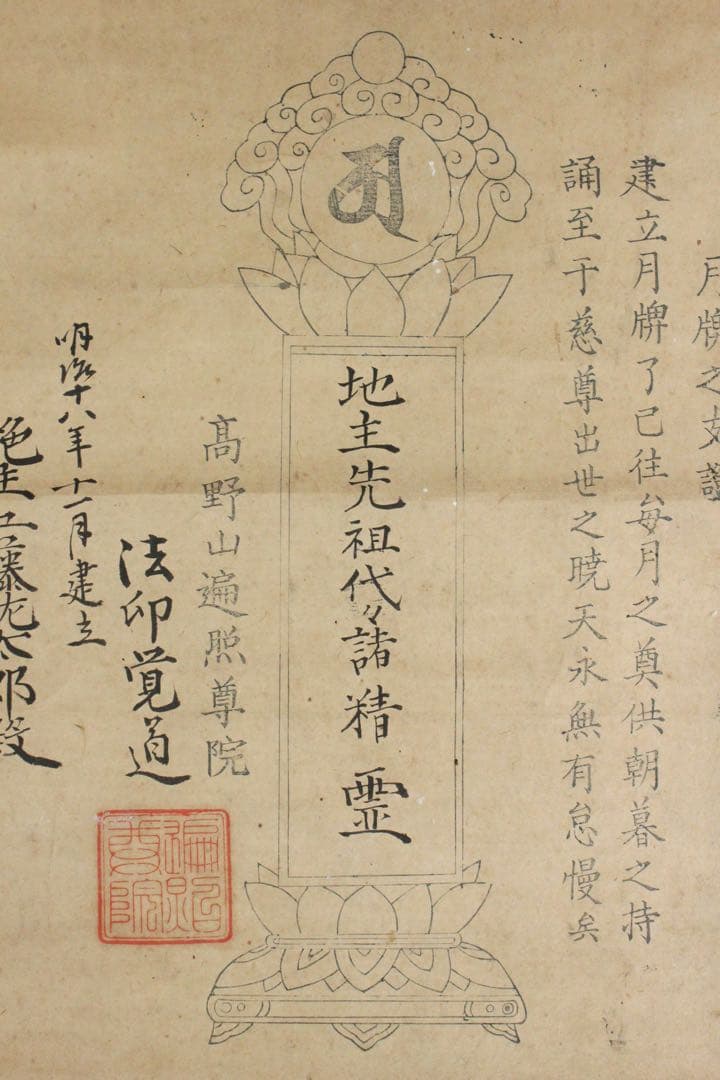 月牌之支證
建立月牌了已往每月之奠供朝暮之持
誦至于慈尊出世之暁天永無有怠慢矣
地主先祖代々諸精霊
髙野山遍照尊院
法印覚道
明治十八年十一月建立
施主工藤左太郎殿
遍照尊院